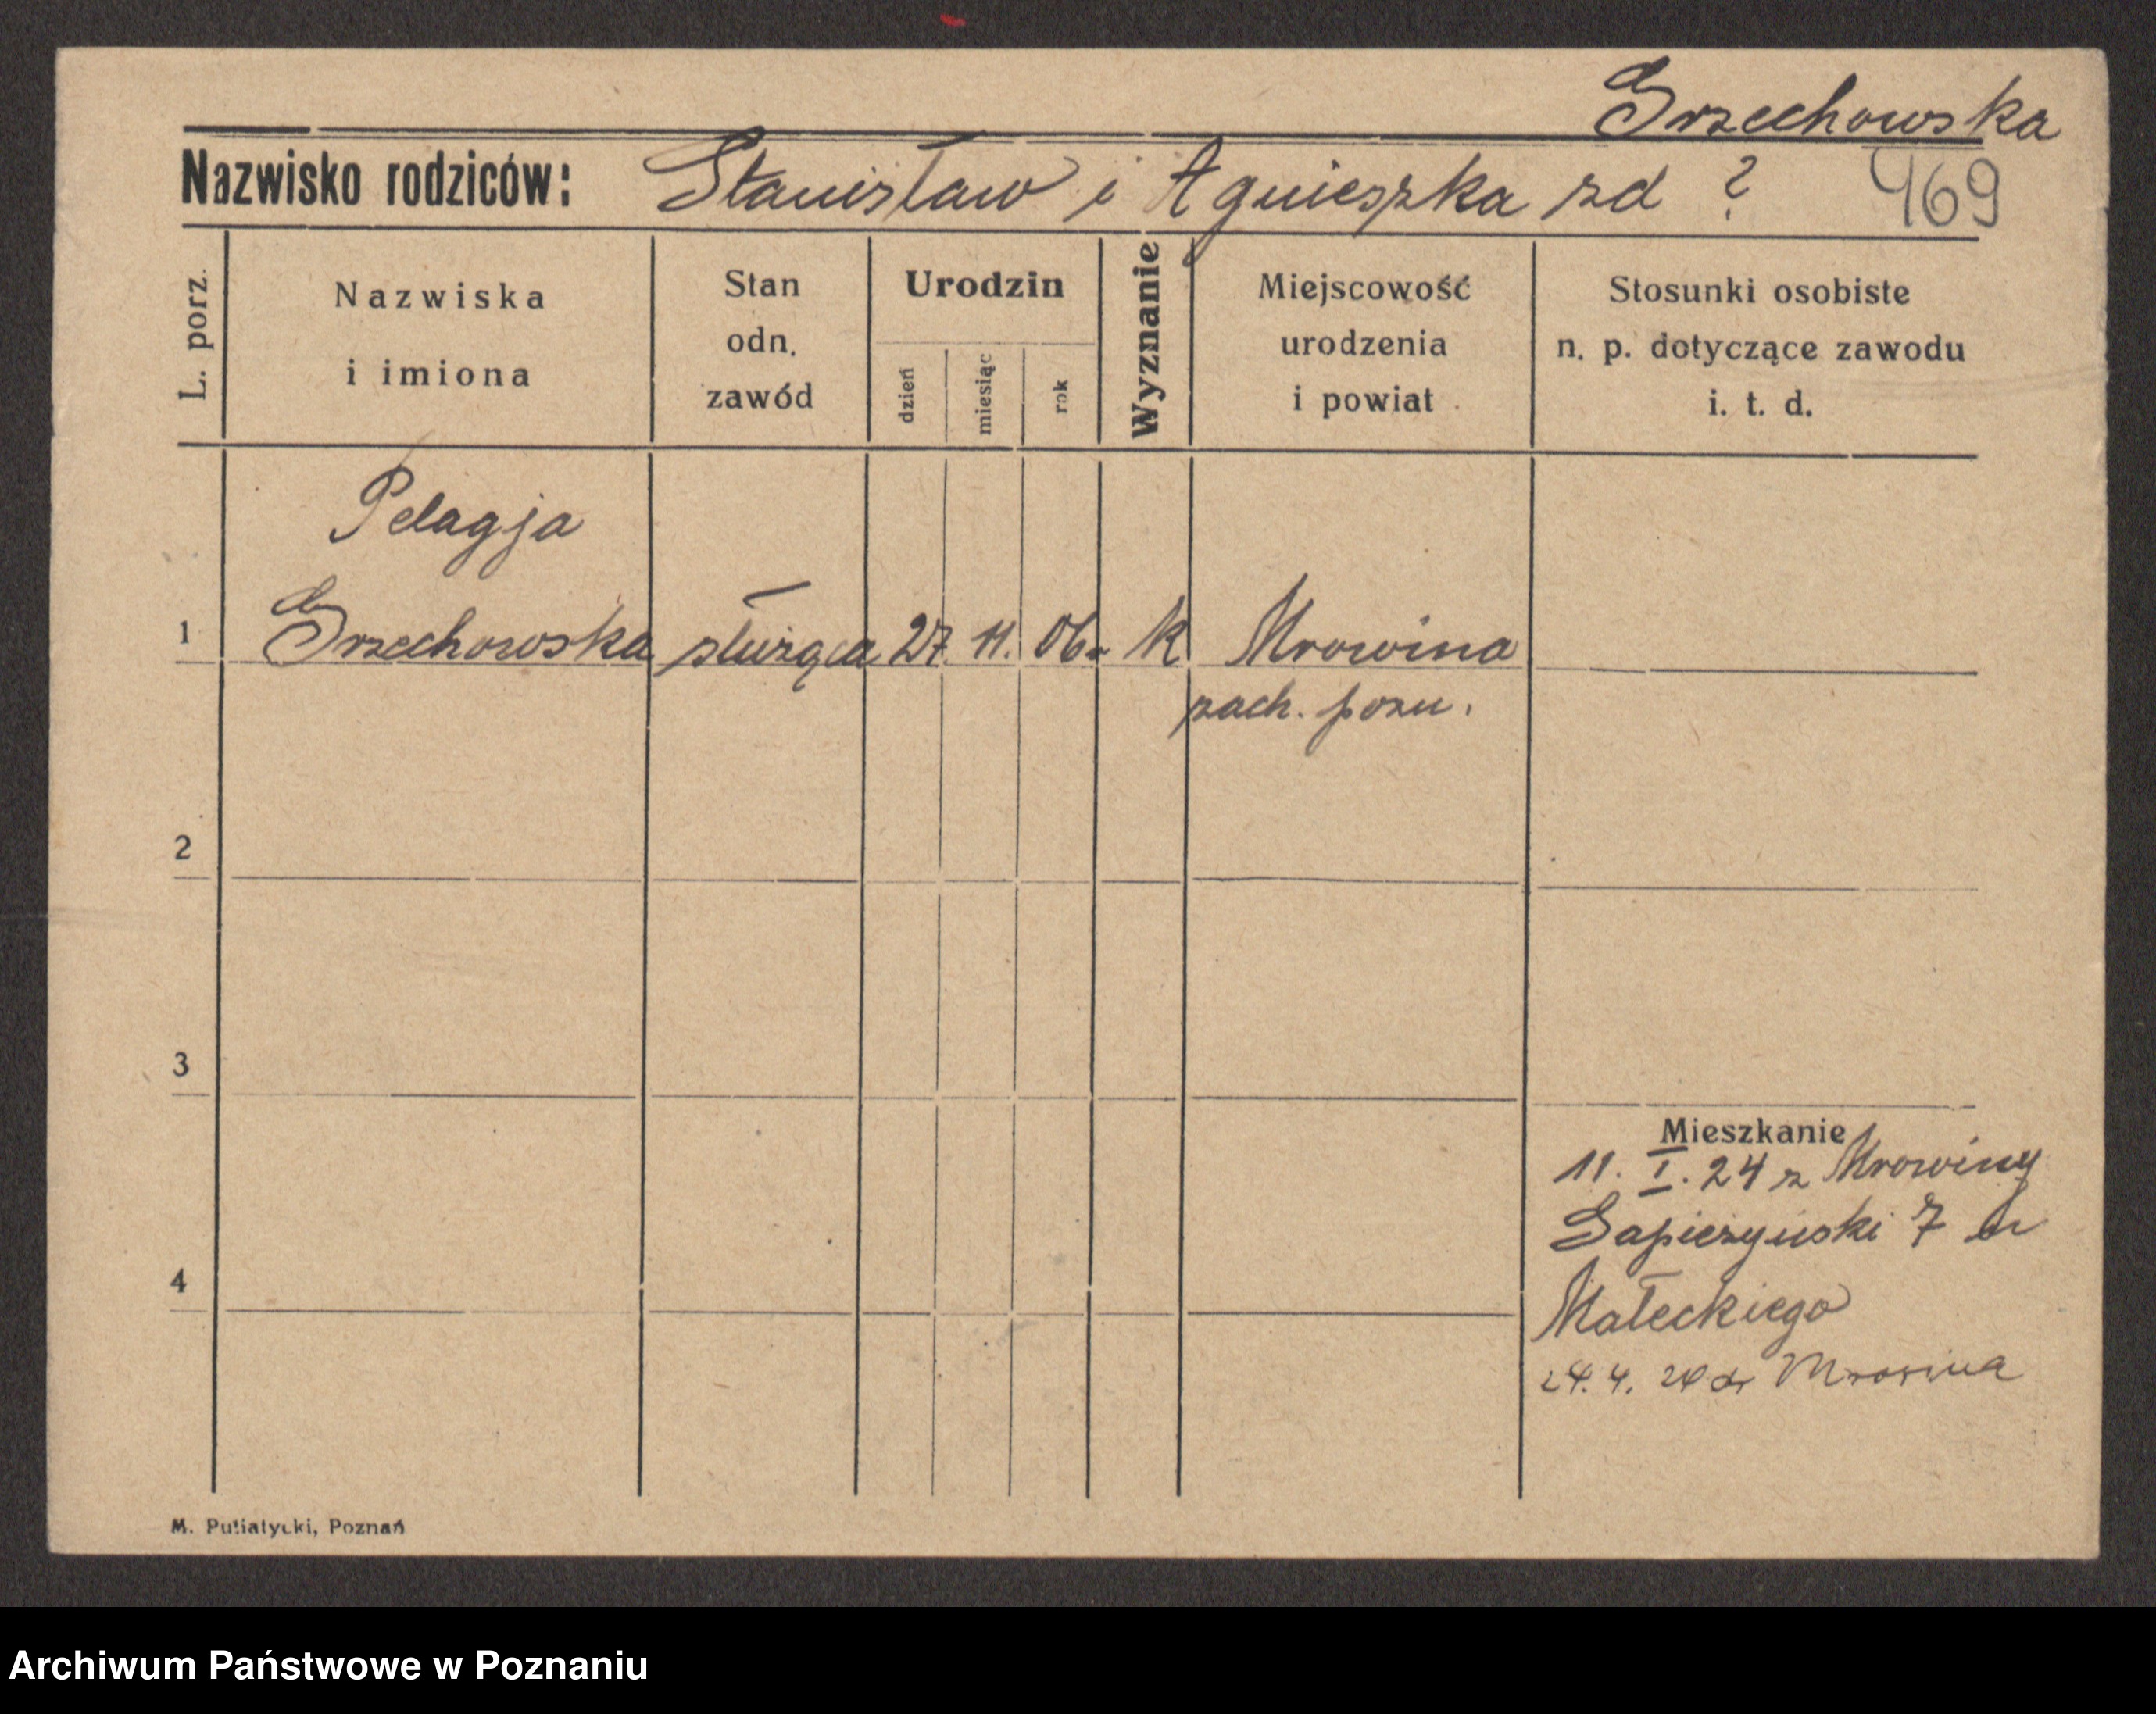 Grzechowska
Nazwisko rodziców: Stanisław i Agnieszka zd ? 469
L. porz.
Nazwiska
i imiona
Stan
odn.
zawód
Urodzin
dzień
miesiąc
rok
Wyznanie
Miejscowość
urodzenia
i powiat
Stosunki osobiste
n. p. dotyczące zawodu
i. t. d.
Pelagja
1 Grzechowska służąca 27. 11. 06. k Mrowina
zach. pozn.
2
3
Mieszkanie
11. I. 24 z Mrowiny
Sapieżyński 7
4
Małeckiego
24. 4. 24 do Mrowina
M. Putiatycki, Poznań
Archiwum Państwowe w Poznaniu